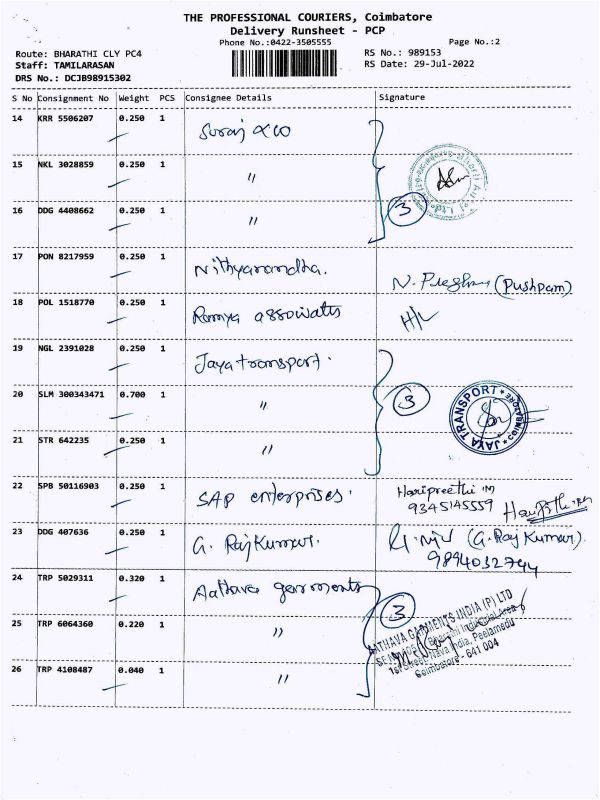 THE PROFESSIONAL COURIERS, Coimbatore
Delivery Runsheet - PCP
Phone No.:0422-3505555
Page No.:2
Route: BHARATHI CLY PC4
RS No.: 989153
Staff: TAMILARASAN
RS Date: 29-Jul-2022
DRS No.: DCJB98915302
S No Consignment No Weight PCS Consignee Details Signature
14 KRR 5506207 0.250 1 Suraj & Co
15 NKL 3028859 0.250 1 "
16 DDG 4408662 0.250 1 " 3
17 PON 8217959 0.250 1 Nithyanandha. (Pushpam)
18 POL 1518770 0.250 1 Ramya associates H/L
19 NGL 2391028 0.250 1 Jaya transport.
20 SLM 300343471 0.700 1 " 3
JAYA TRANSPORT COIMBATORE
21 STR 642235 0.250 1 "
22 SPB 50116903 0.250 1 SAP enterprises. Haripreethi .M
9345145559
23 DDG 407636 0.250 1 G. Raj Kumar. (G. Raj Kumar).
9894032744
24 TRP 5029311 0.320 1 Aathava garments
25 TRP 6064360 0.220 1 " 3
AATHAVA GARMENTS INDIA (P) LTD
Bharathi Industrial Area
India, Peelamedu
Coimbatore - 641 004
26 TRP 4108487 0.040 1 "